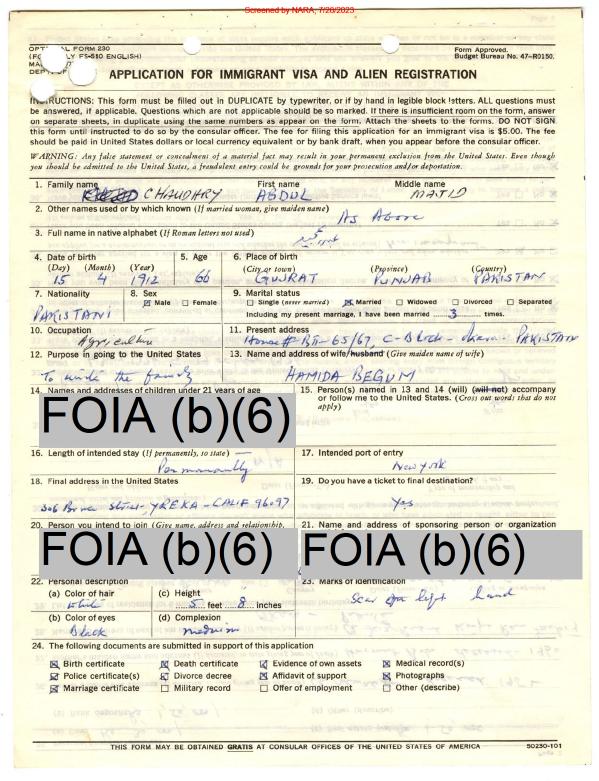 Screened by NARA, 7/20/2023
OPTIONAL FORM 230
(FORMERLY FS-510 ENGLISH)
DEPT. OF
Form Approved.
Budget Bureau No. 47-R0150.
APPLICATION FOR IMMIGRANT VISA AND ALIEN REGISTRATION
INSTRUCTIONS: This form must be filled out in DUPLICATE by typewriter, or if by hand in legible block letters. ALL questions must
be answered, if applicable. Questions which are not applicable should be so marked. If there is insufficient room on the form, answer
on separate sheets, in duplicate using the same numbers as appear on the form. Attach the sheets to the forms. DO NOT SIGN
this form until instructed to do so by the consular officer. The fee for filing this application for an immigrant visa is $5.00. The fee
should be paid in United States dollars or local currency equivalent or by bank draft, when you appear before the consular officer.
WARNING: Any false statement or concealment of a material fact may result in your permanent exclusion from the United States. Even though
you should be admitted to the United States, a fraudulent entry could be grounds for your prosecution and/or deportation.
1. Family name First name Middle name
CHAUDHRY ABDUL MAJID
2. Other names used or by which known (If married woman, give maiden name)
As Above
3. Full name in native alphabet (If Roman letters not used)
4. Date of birth 5. Age 6. Place of birth
(Day) (Month) (Year) (City or town) (Province) (Country)
15 4 1912 66 GUJRAT PUNJAB PAKISTAN
7. Nationality 8. Sex 9. Marital status
Male Female Single (never married) Married Widowed Divorced Separated
PAKISTANI Including my present marriage, I have been married 3 times.
10. Occupation 11. Present address
Agriculture House # BII-65/67, C-Block- Okara- PAKISTAN
12. Purpose in going to the United States 13. Name and address of wife/husband (Give maiden name of wife)
To unite the family HAMIDA BEGUM
14. Names and addresses of children under 21 years of age 15. Person(s) named in 13 and 14 (will) (will not) accompany
or follow me to the United States. (Cross out words that do not
apply)
FOIA (b)(6)
16. Length of intended stay (If permanently, so state) 17. Intended port of entry
Permanently New York
18. Final address in the United States 19. Do you have a ticket to final destination?
306 Street- YREKA - CALIF 96097 Yes
20. Person you intend to join (Give name, address and relationship, 21. Name and address of sponsoring person or organization
FOIA (b)(6) FOIA (b)(6)
22. Personal description 23. Marks of identification
(a) Color of hair (c) Height
white 5 feet 8 inches Scar on left hand
(b) Color of eyes (d) Complexion
Black medium
24. The following documents are submitted in support of this application
Birth certificate Death certificate Evidence of own assets Medical record(s)
Police certificate(s) Divorce decree Affidavit of support Photographs
Marriage certificate Military record Offer of employment Other (describe)
THIS FORM MAY BE OBTAINED GRATIS AT CONSULAR OFFICES OF THE UNITED STATES OF AMERICA
50230-101